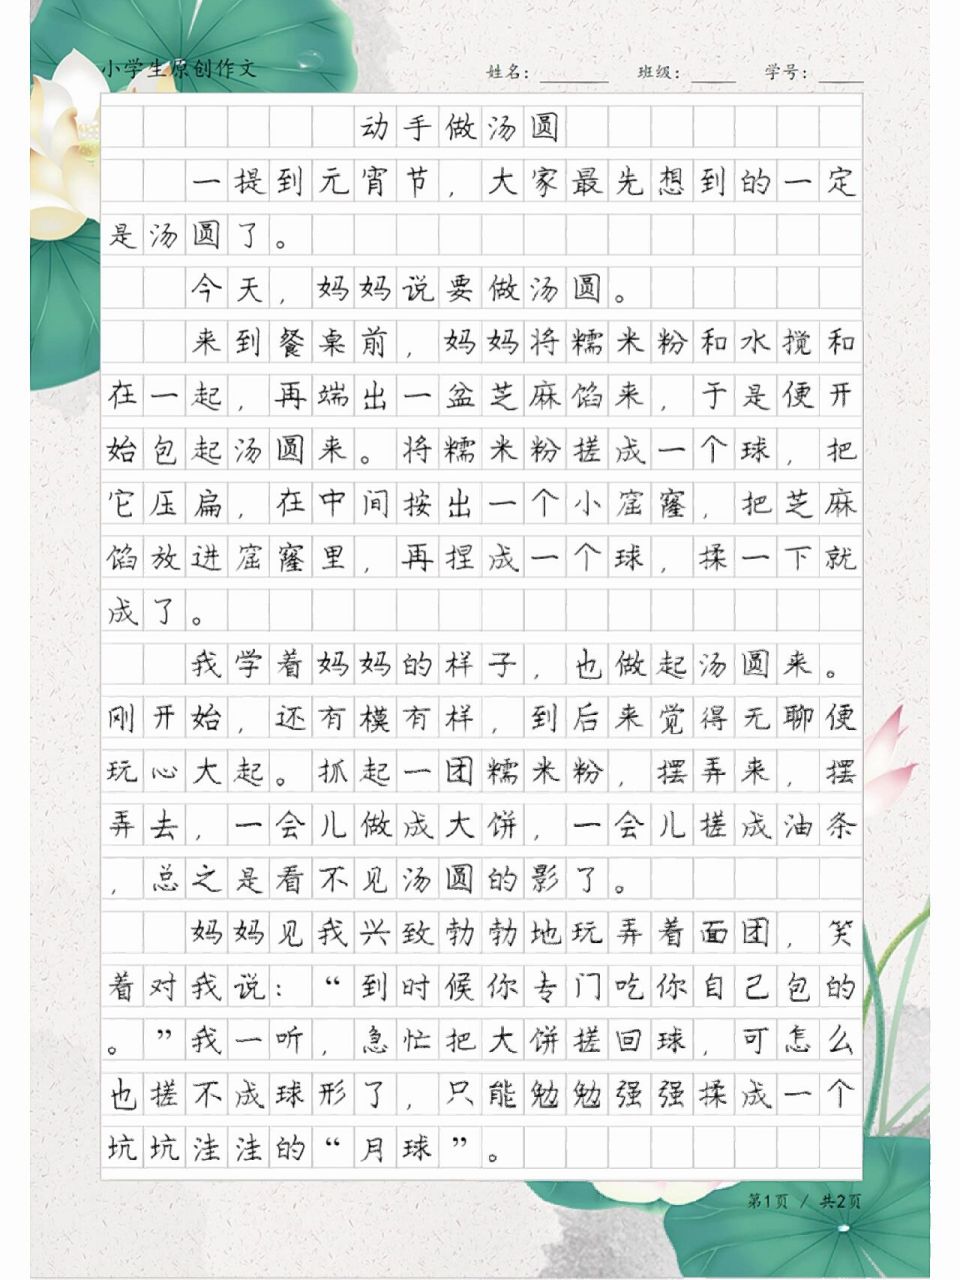 小学生原创作文 姓名: 班级: 学号:
动手做汤圆
一提到元宵节，大家最先想到的一定
是汤圆了。
今天，妈妈说要做汤圆。
来到餐桌前，妈妈将糯米粉和水搅和
在一起，再端出一盆芝麻馅来，于是便开
始包起汤圆来。将糯米粉搓成一个球，把
它压扁，在中间按出一个小窟窿，把芝麻
馅放进窟窿里，再捏成一个球，揉一下就
成了。
我学着妈妈的样子，也做起汤圆来。
刚开始，还有模有样，到后来觉得无聊便
玩心大起。抓起一团糯米粉，摆弄来，摆
弄去，一会儿做成大饼，一会儿搓成油条
，总之是看不见汤圆的影了。
妈妈见我兴致勃勃地玩弄着面团，笑
着对我说：“到时候你专门吃你自己包的
。”我一听，急忙把大饼搓回球，可怎么
也搓不成球形了，只能勉勉强强揉成一个
坑坑洼洼的“月球”。
第1页 / 共2页